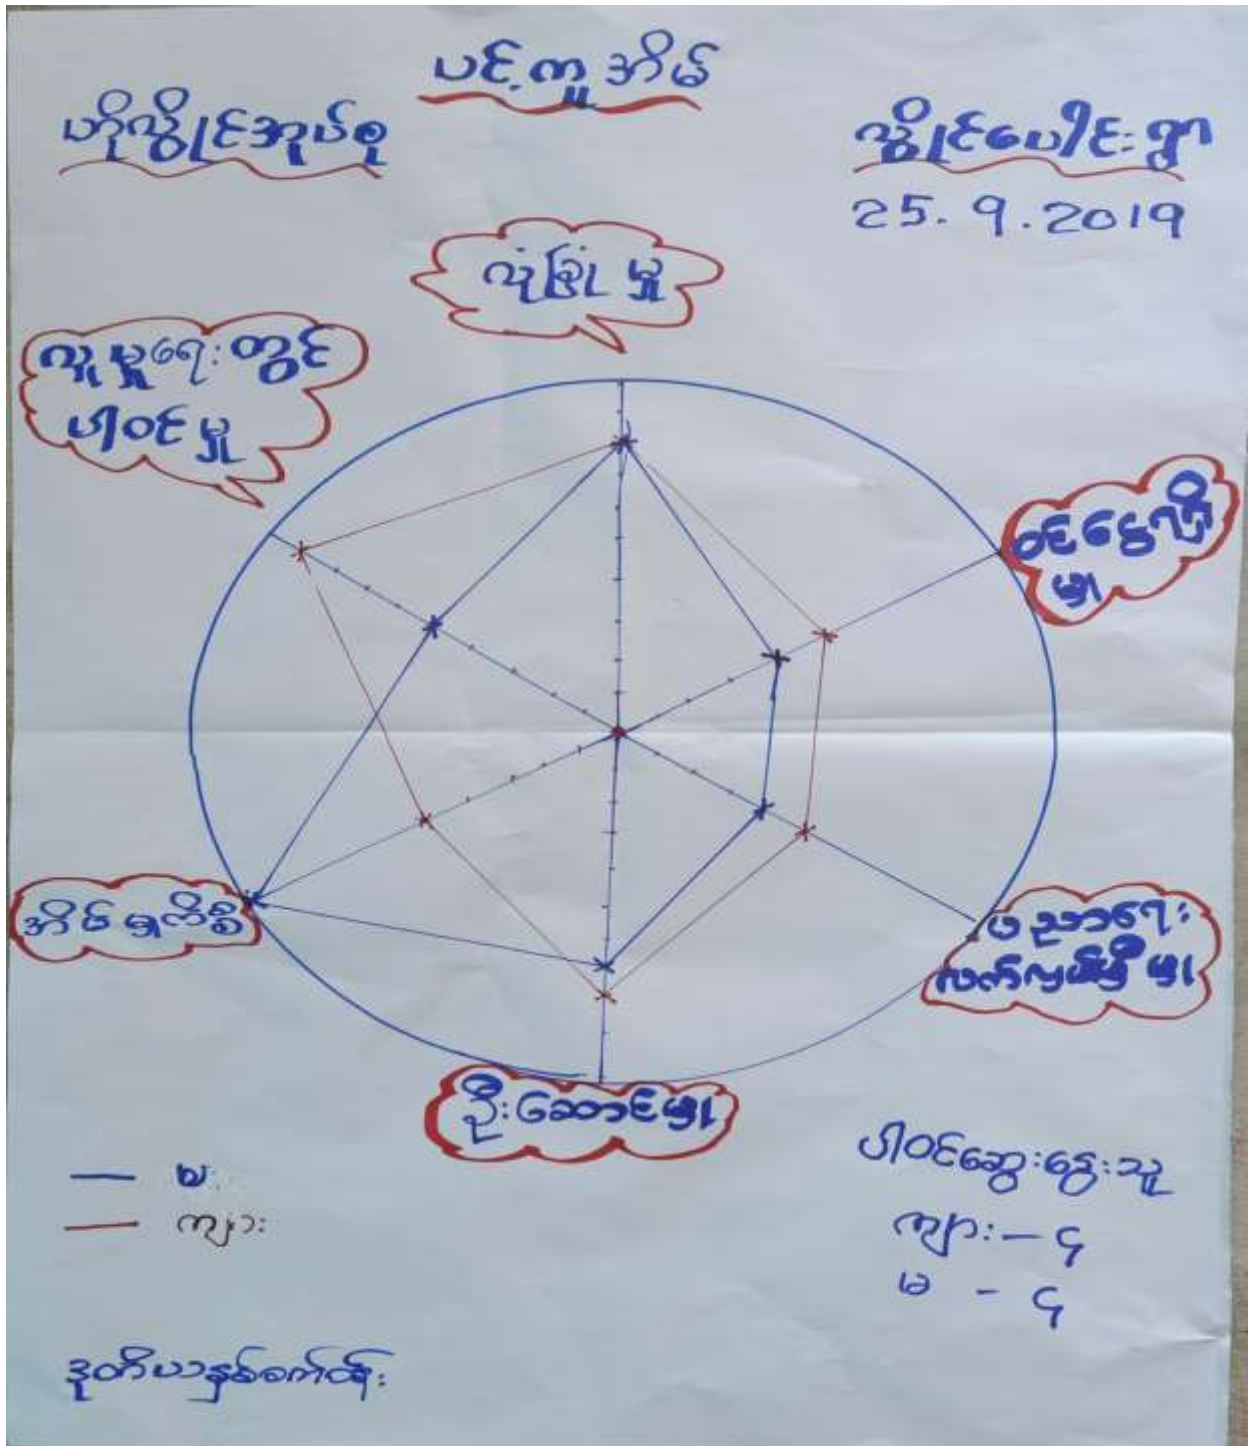 ပင့်ကူအိမ်
ဟိုလှိုင်အုပ်စု
လှိုင်ပေါင်းရွာ
25.9.2019
လုံခြုံမှု
လူမှုရေးတွင်
ပါဝင်မှု
ဝင်ငွေရရှိ
မှု
အိမ်မှုကိစ္စ
ပညာရေး
လက်လှမ်းမှီမှု
ဦးဆောင်မှု
မ
ကျား
ပါဝင်ဆွေးနွေးသူ
ကျား - ၄
မ - ၄
ဒုတိယနှစ်စက်ဝန်း